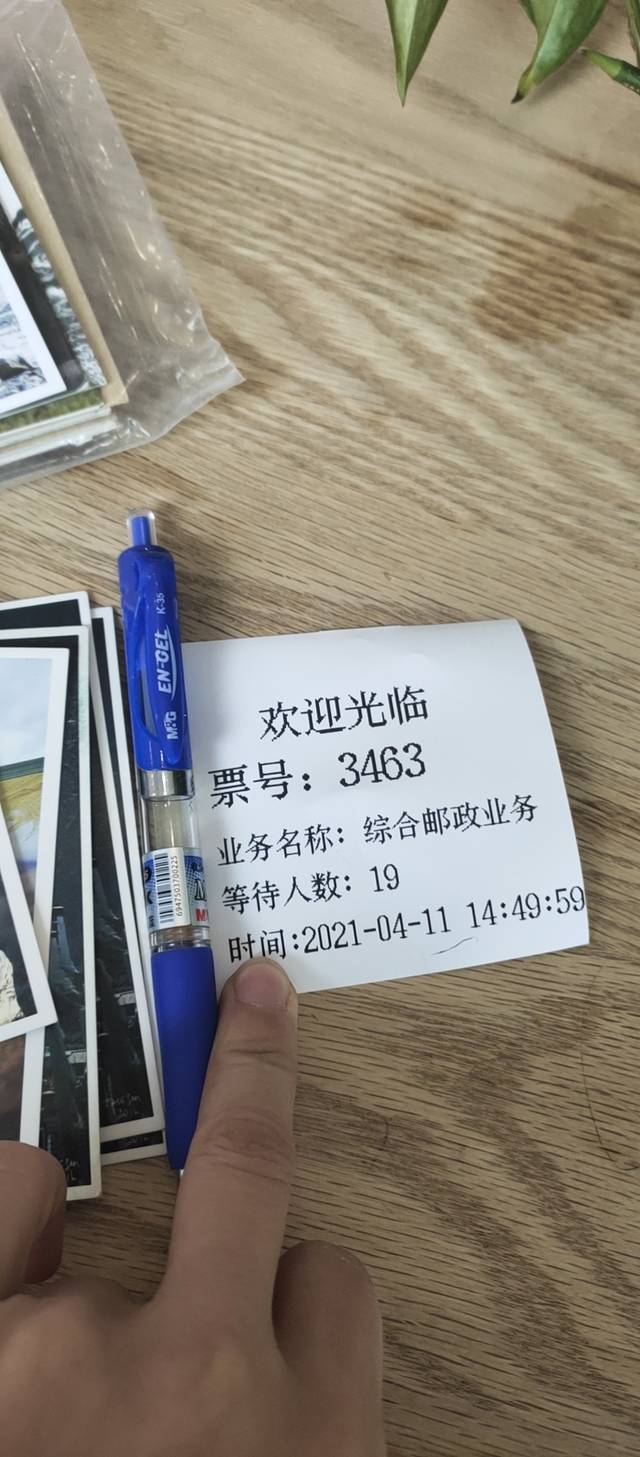 欢迎光临
票号：3463
业务名称：综合邮政业务
等待人数：19
时间:2021-04-11 14:49:59
M&G EN-GEL K-35
6947503700225